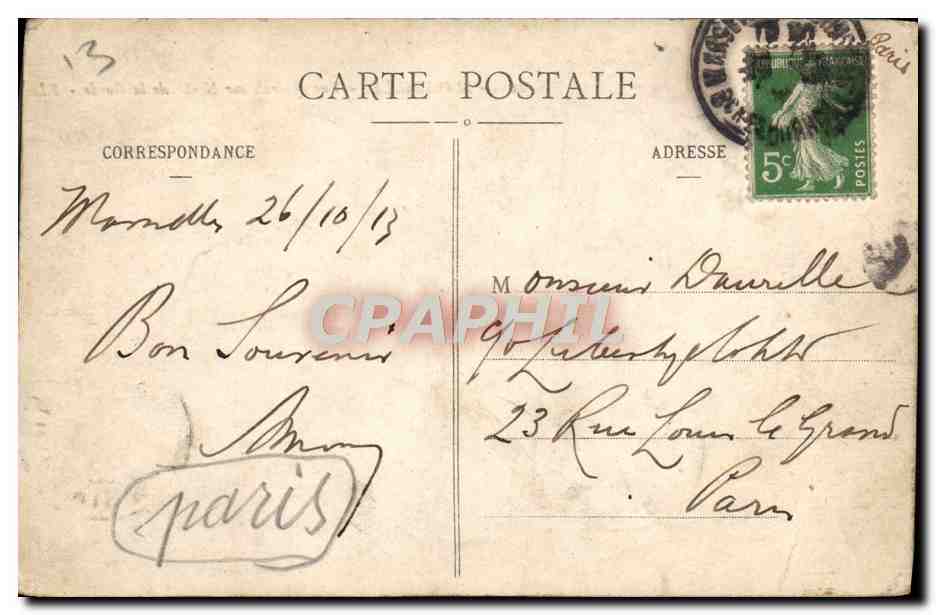 13
CARTE POSTALE
CORRESPONDANCE
ADRESSE
Paris
REPUBLIQUE FRANCAISE
5c
POSTES
Marseille 26/10/13
Bon Souvenir
paris
Monsieur Daurelle
c/o Liberty
23 Rue Louis le Grand
Paris
CPAPHIL